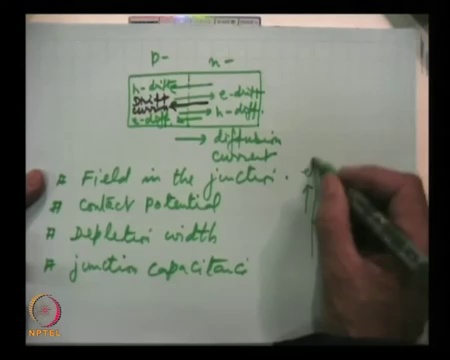 p- n-
h-drift
Drift e-drift
current h-diff.
e-diff.
→ diffusion
current
# Field in the junction.
# contact potential
# Depletion width
# junction capacitanci
NPTEL